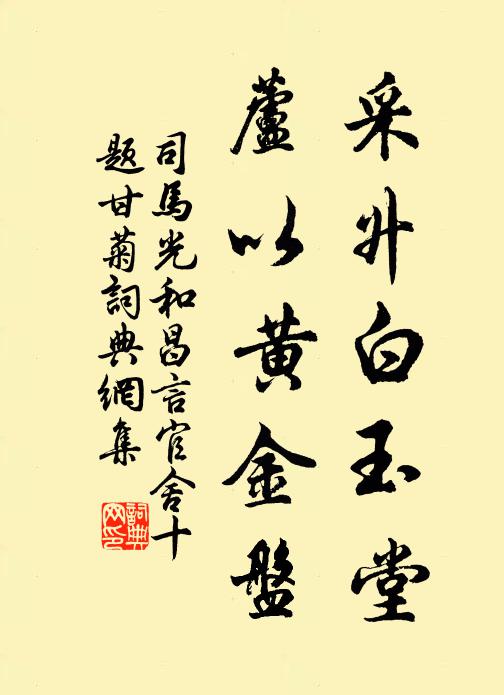 采升白玉堂
蘆以黃金盤
司馬光和昌言官舍十
題甘菊詞典網集
詞典
网印